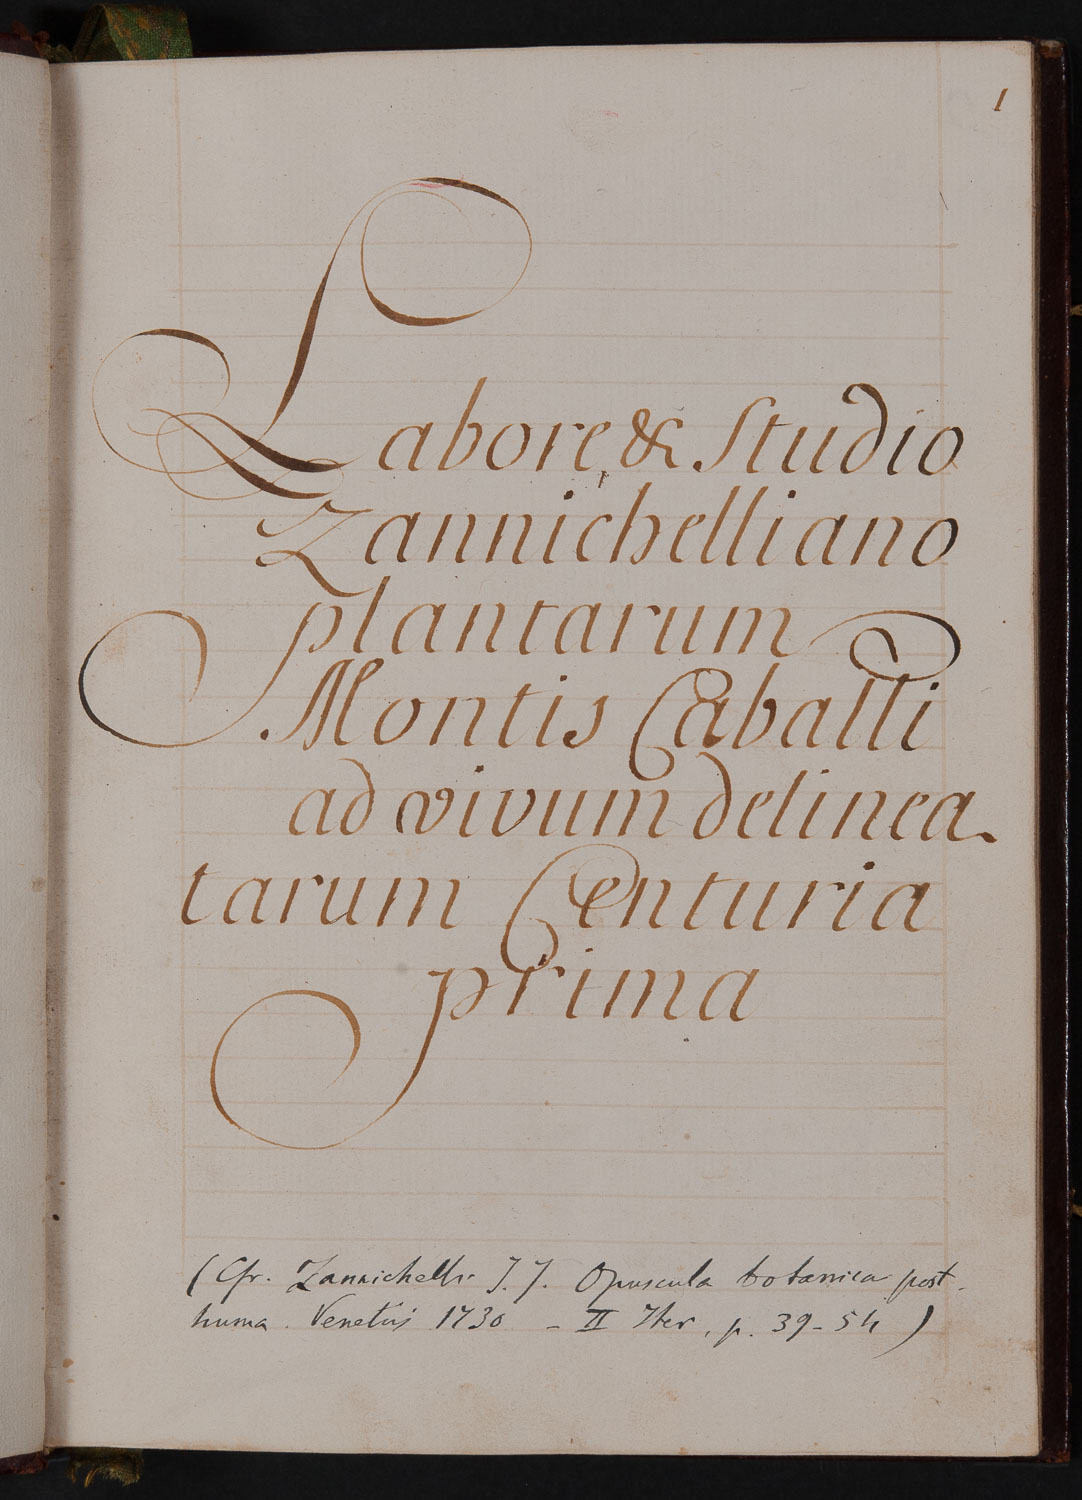 1
Labore, & Studio
Zannichelliano
plantarum
Montis Caballi
ad vivum delinea-
tarum Centuria
prima
(Cfr. Zannichelli J. J. Opuscula botanica post-
huma. Venetiis 1730 - II Iter, p. 39-54)